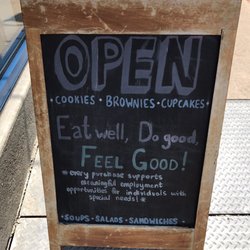 OPEN
• COOKIES • BROWNIES • CUPCAKES •
Eat well, Do good,
FEEL GOOD!
*every purchase supports
meaningful employment
opportunities for individuals with
special needs!*
• SOUPS • SALADS • SANDWICHES •